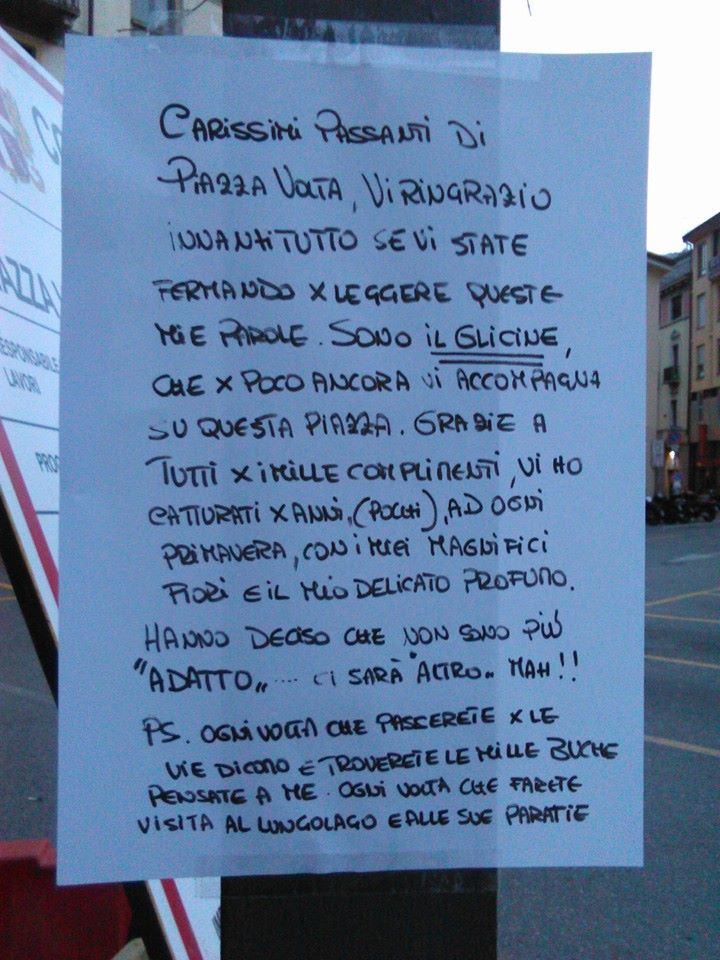 CARISSIMI PASSANTI DI
PIAZZA VOLTA, VI RINGRAZIO
INNANZITUTTO SE VI STATE
FERMANDO X LEGGERE QUESTE
MIE PAROLE. SONO IL GLICINE,
CHE X POCO ANCORA VI ACCOMPAGNA
SU QUESTA PIAZZA. GRAZIE A
TUTTI X I MILLE COMPLIMENTI, VI HO
CATTURATI X ANNI, (POCHI), AD OGNI
PRIMAVERA, CON I MIEI MAGNIFICI
FIORI E IL MIO DELICATO PROFUMO.
HANNO DECISO CHE NON SONO PIÙ
"ADATTO" .... CI SARÀ "ALTRO" MAH!!
PS. OGNI VOLTA CHE PASSERETE X LE
VIE DI COMO E TROVERETE LE MILLE BUCHE
PENSATE A ME. OGNI VOLTA CHE FARETE
VISITA AL LUNGOLAGO E ALLE SUE PARATIE
CO
AZZA
RESPONSABILE
LAVORI
PROG